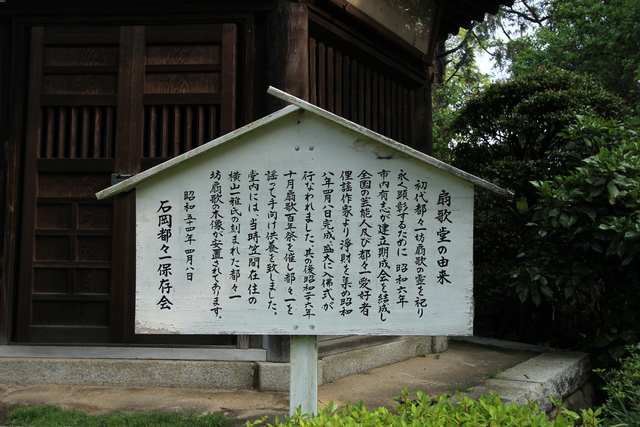 扇歌堂の由来
初代都々一坊扇歌の霊を祀り
永く顕彰するために 昭和六年
市内有志が建立期成会を結成し
全国の芸能人及び都々一愛好者
俚謡作家より浄財を集め昭和
八年四月八日完成、盛大に入佛式が
行なわれました、其の後昭和二十六年
十月扇歌百年祭を催し都々一を
謡って手向け供養を致しました。
堂内には、当時笠間在住の
横山一雅氏の刻まれた都々一
坊扇歌の木像が安置されております。
昭和五十四年四月八日
石岡都々一保存会